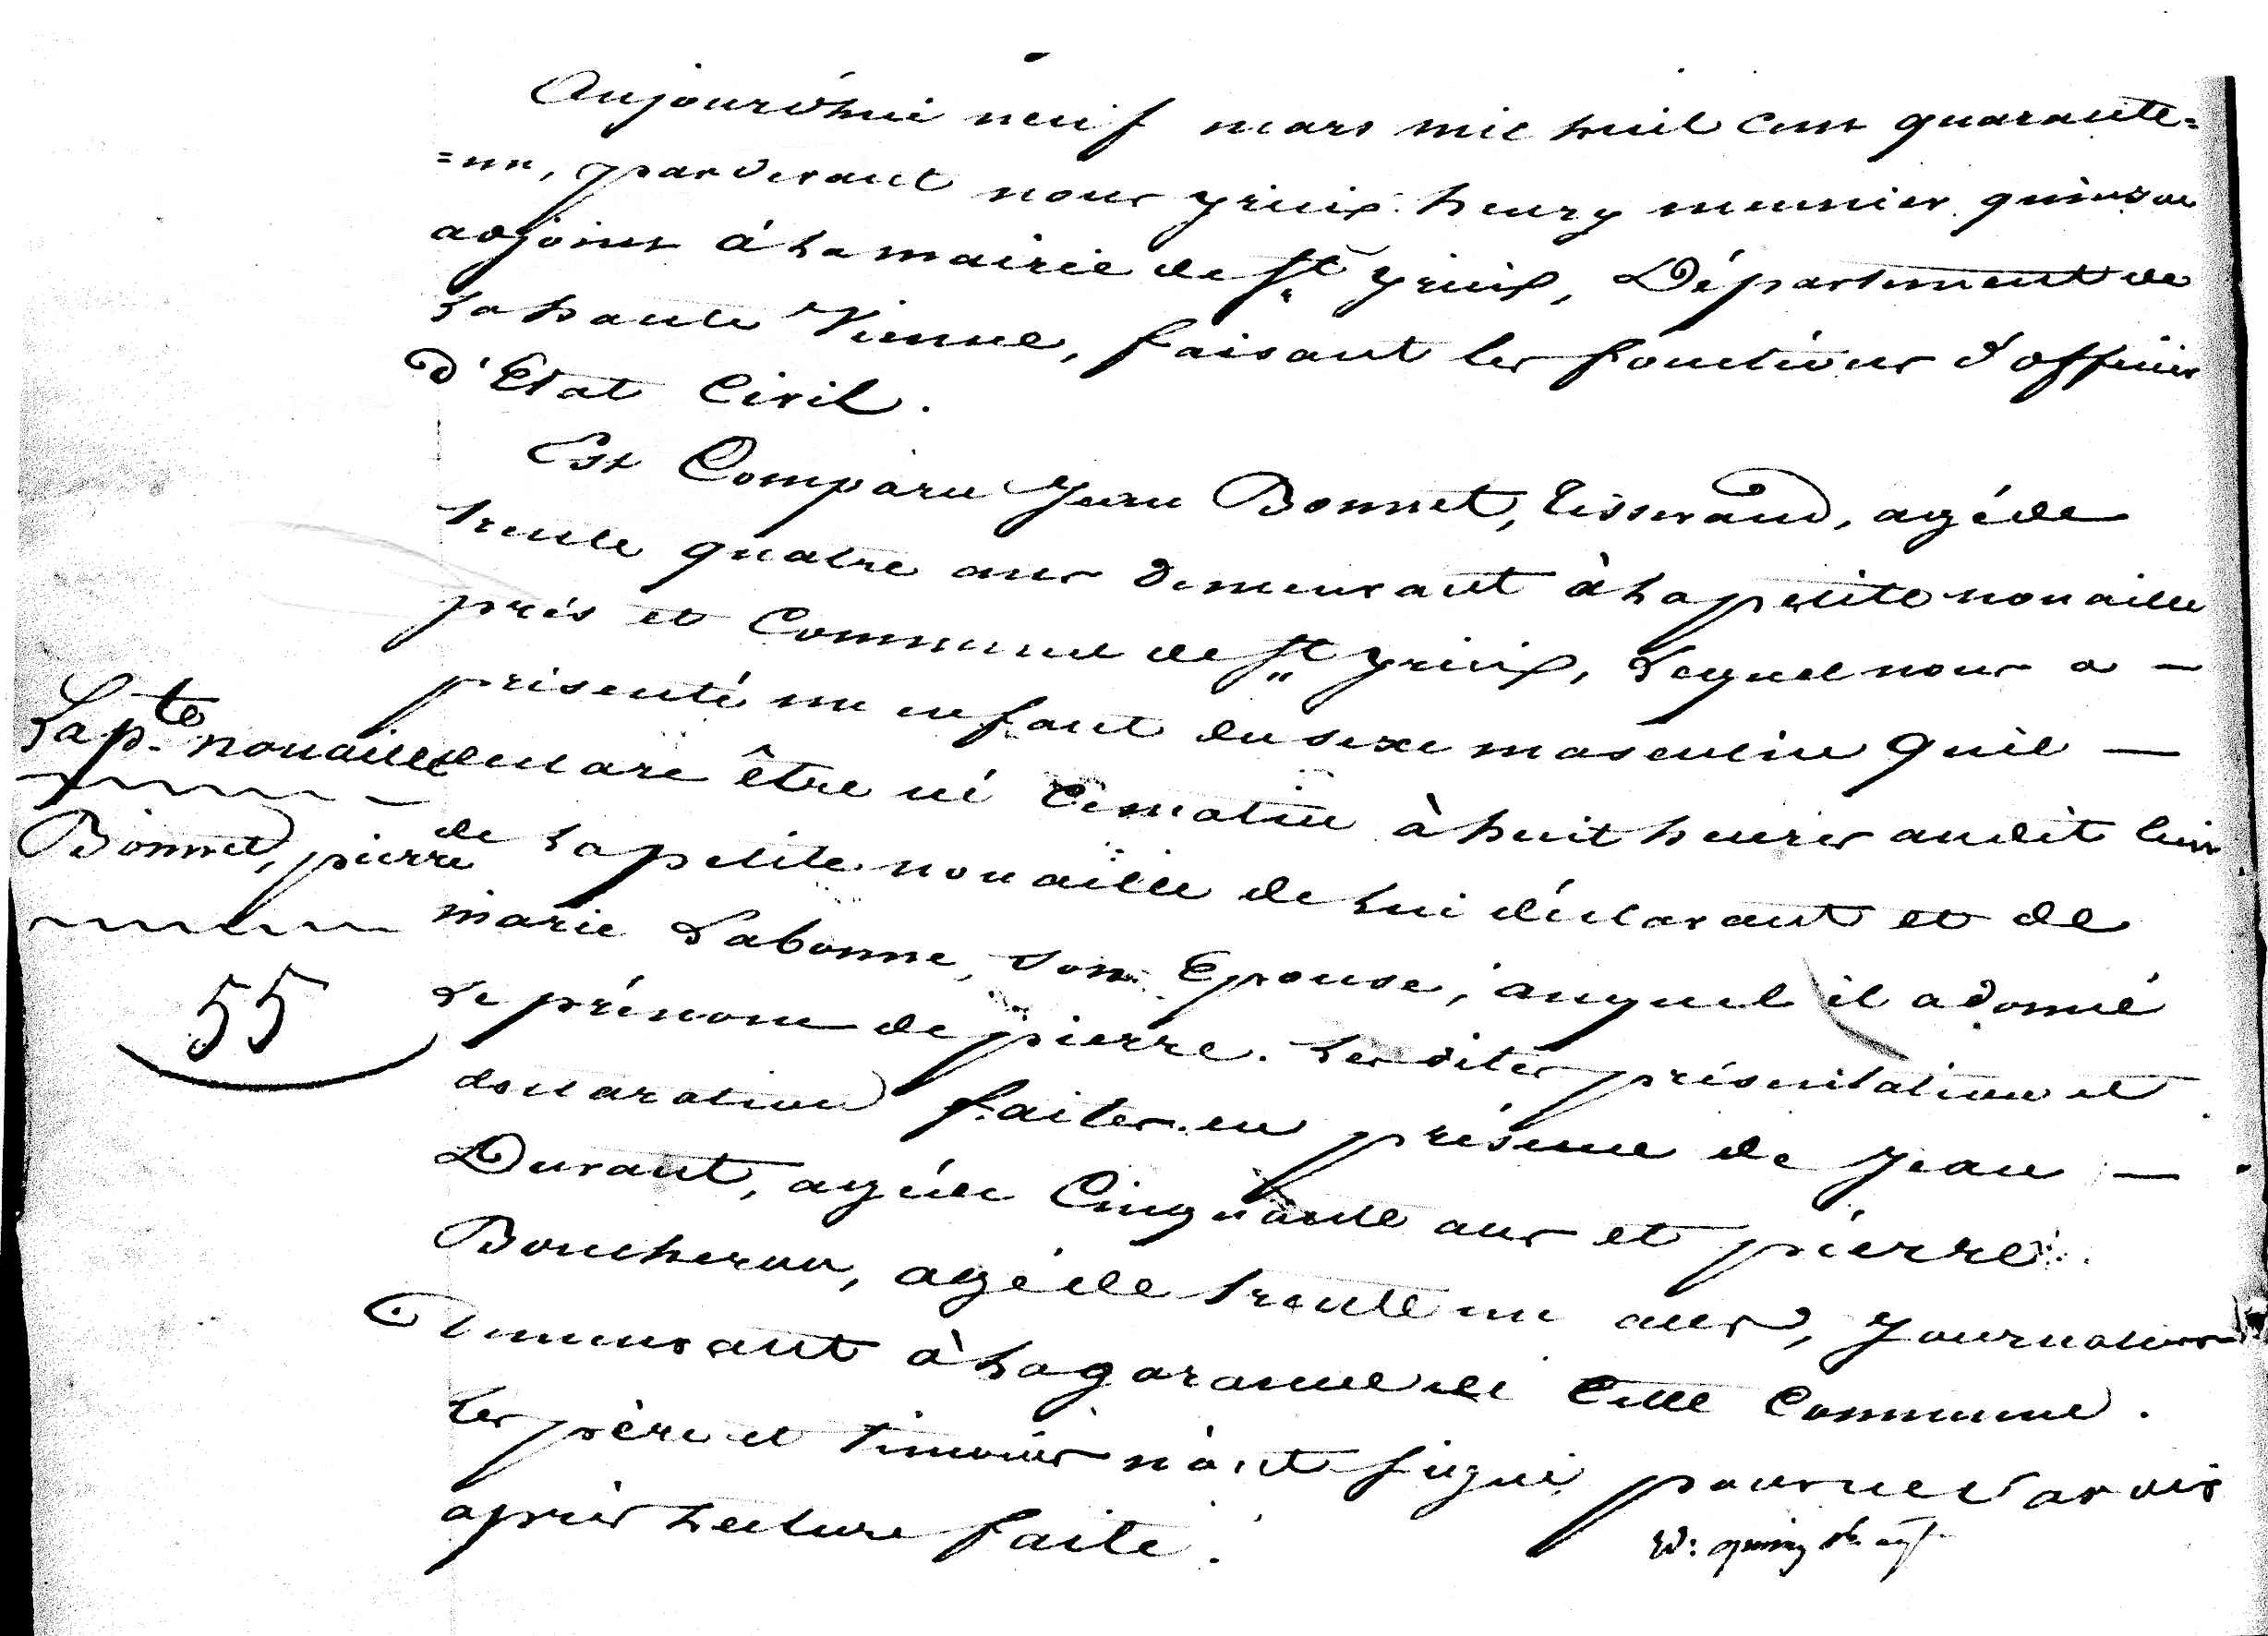 Aujourd'hui neuf mars mil huit cent quarante=
=un, pardevant nous yrieix henry meunier
adjoint à la mairie de St. yrieix, Département de
la haute Vienne, faisant les fonctions d'officier
D'Etat Civil.
Est Comparu Jean Bonnet, tisserand, agé de
trente quatre ans demeurant à la petite nouaille
près et Commune de St. yrieix, Lequel nous a —
présenté un enfant du sexe masculin qu'il —
déclare être né Ce matin à huit heures audit lieu
de la petite nouaille de lui déclarant et de
marie Labonne, son Epouse, auquel il a donné
Le prénom de pierre. Lesdites présentation et
déclaration faites en présence de Jean —
Durant, agé de Cinquante ans et pierre
Boucheron, agé de trente un ans, Journaliers
Demeurant à la garenne de Cette Commune.
Les père et témoins n'ont signé pour ne savoir
après lecture faite.
La pte nouaille
Bonnet, pierre
55